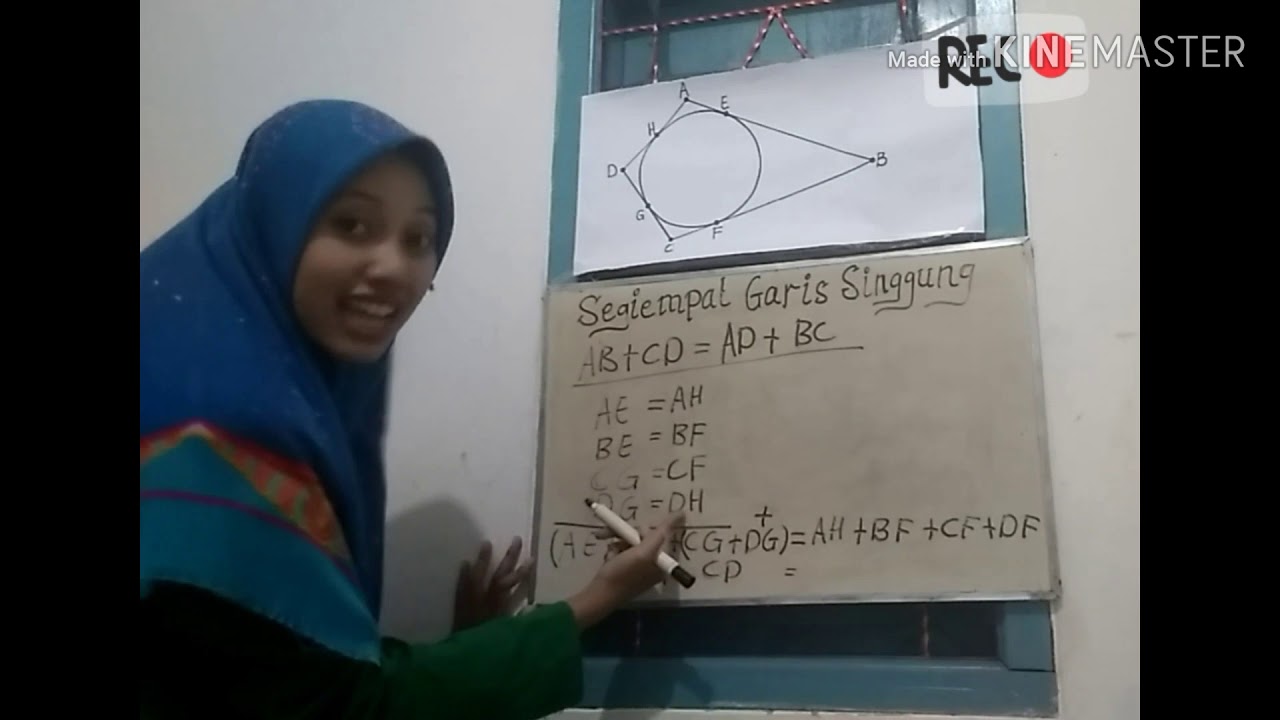 Made with KINEMASTER
REC
A
E
H
D
B
G
F
C
Segiempat Garis Singgung
AB+CD = AD + BC
AE = AH
BE = BF
CG = CF
DG = DH
+
(AE +(CG+DG) = AH +BF +CF+DF
CD =